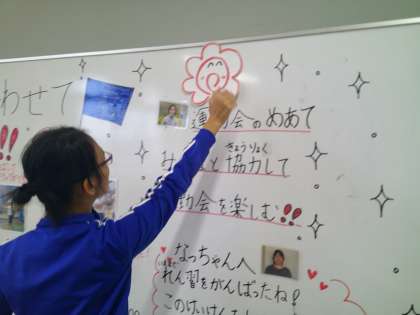 わせて
!!
運動会のめあて
み なと協力して
きょうりょく
動会を楽しむ!!
なっちゃんへ
れん習をがんばったね!
このけいけん